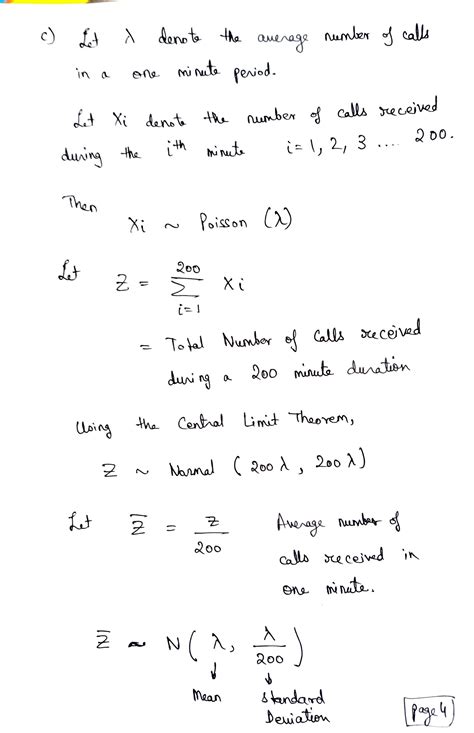 c) Let λ denote the average number of calls
in a one minute period.
Let Xi denote the number of calls received
during the ith minute i= 1, 2, 3 .... 200.
Then
Xi ~ Poisson (λ)
Let Z = 200 Σ i=1 Xi
= Total Number of Calls received
during a 200 minute duration
Using the Central Limit Theorem,
Z ~ Normal (200λ, 200λ)
Let Z̄ = Z/200 Average number of
calls received in
one minute.
Z̄ ~ N(λ, λ/200)
↓ ↓
Mean Standard
Deviation
page 4